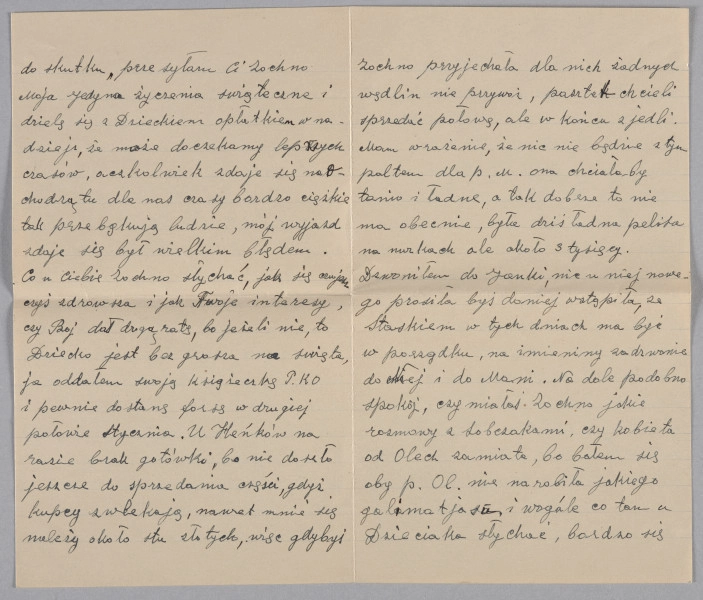 do skutku, przesyłam Ci Zochno
Moja jedyna życzenia świąteczne i
dzielę się z Dzieckiem opłatkiem w na-
dzieji, że może doczekamy lepszych
czasów, aczkolwiek zdaje się nad-
chodzą tu dla nas czasy bardzo ciężkie
tak przebąkują ludzie, mój wyjazd
zdaje się był wielkim błędem.
Co u Ciebie Zochno słychać, jak się czujesz
czyś zdrowsza i jak Twoje interesy,
czy dał drugą ratę, bo jeżeli nie, to
Dziecko jest bez grosza na święta,
ja oddałem swoją książeczkę P.K.O
i pewnie dostanę forsę w drugiej
połowie stycznia. U Heńków na
razie brak gotówki, bo nie doszło
jeszcze do sprzedania części, gdyż
kupcy zwlekają, nawet mnie się
należy około stu złotych, więc gdybyś
Zochno przyjechała dla nich żadnych
wędlin nie przywoź, pasztet chcieli
sprzedać połowę, ale w końcu zjedli.
Mam wrażenie, że nic nie będzie z tym
paltem dla p. M. ona chciałaby
tanio i ładne, a tak dobrze to nie
ma obecnie, była dziś ładna pelisa
na nurkach ale około 3 tysięcy.
Dzwoniłem do Janki, nic u niej nowe-
go prosiła byś do niej wstąpiła, ze
Staśkiem w tych dniach ma być
w porządku, na imieniny zadzwonię
do niej i do Mani. Na dole podobno
spokój, czy miałaś Zochno jakie
rozmowy z Sobczakami, czy kobieta
od Olech zamiata, bo bałem się
aby p. Ol. nie narobiła jakiego
galimatjasu, i wogóle co tam u
Dzieciaka słychać, bardzo się